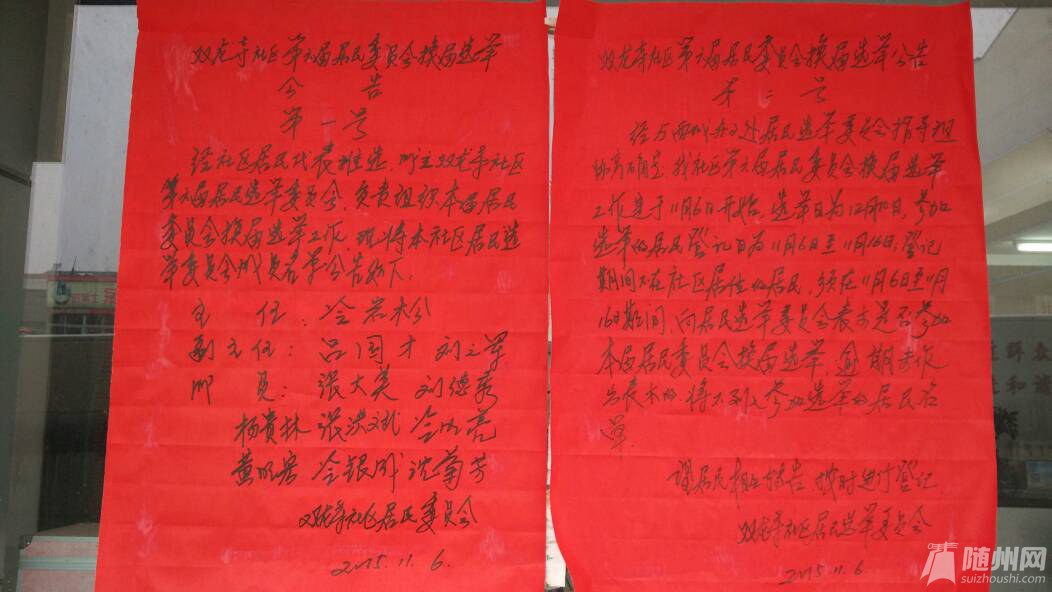 双龙寺社区第六届居民委员会换届选举
公告
第一号
经社区居民代表推选，成立双龙寺社区
第六届居民选举委员会，负责组织本届居民
委员会换届选举工作，现将本社区居民选
举委员会成员名单公告如下。
主 任：冷若松
副主任：吕国才 刘立军
成 员：张大英 刘德秀
杨贵林 张洪斌
黄明宏 冷银成 沈菊芳
双龙寺社区居民委员会
2015.11.6.
双龙寺社区第六届居民委员会换届选举公告
第二号
经与西城办事处居民选举委员会指导组
协商确定，我社区第六届居民委员会换届选举
工作定于11月6日开始，选举日为12月10日，参加
选举的居民登记日为11月6日至11月16日，登记
期间不在社区居住的居民，须在11月6日至11月
16日期间，向居民选举委员会表示是否参加
本届居民委员会换届选举，逾期未作
出表示的，将不列入参加选举的居民名
单。
望居民相互转告，按时进行登记
双龙寺社区居民选举委员会
2015.11.6
随州网
suizhoushi.com